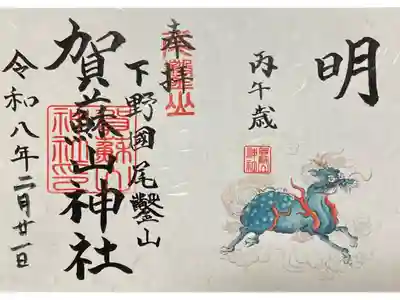 明
丙午歳
奉拝
下野國尾鑿山
賀蘇山神社
令和八年二月廿一日